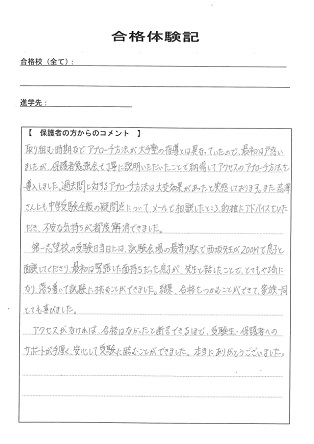 合格体験記
合格校（全て）：
進学先：
【 保護者の方からのコメント 】
取り組む時期など アプローチ方法が大手塾の指導とは異なっていたので、最初は戸惑い
ましたが、保護者勉強会で丁寧に説明いただいたことで納得してアクセスのアプローチ方法を
導入しました。過去問に対するアプローチ方法は大変効果があったと実感しております。また
さんにも中学受験全般の疑問点について、メールで相談したところ、的確なアドバイスをいた
だき、不安な気持ちが都度解消できました。
第一志望校の受験当日には、試験会場の最寄り駅で 先生がZOOMで息子と
面談してくださり、最初は緊張した面持ちだった息子が、先生と話したことで、とても
なり、落ち着いて試験に挑むことができました。結果、合格をつかむことができて、家族一同
とても喜びました。
アクセスがなければ、合格はなかったと断言できるほど、受験生・保護者への
サポートが手厚く、安心して受験に臨むことができました。本当にありがとうございました。